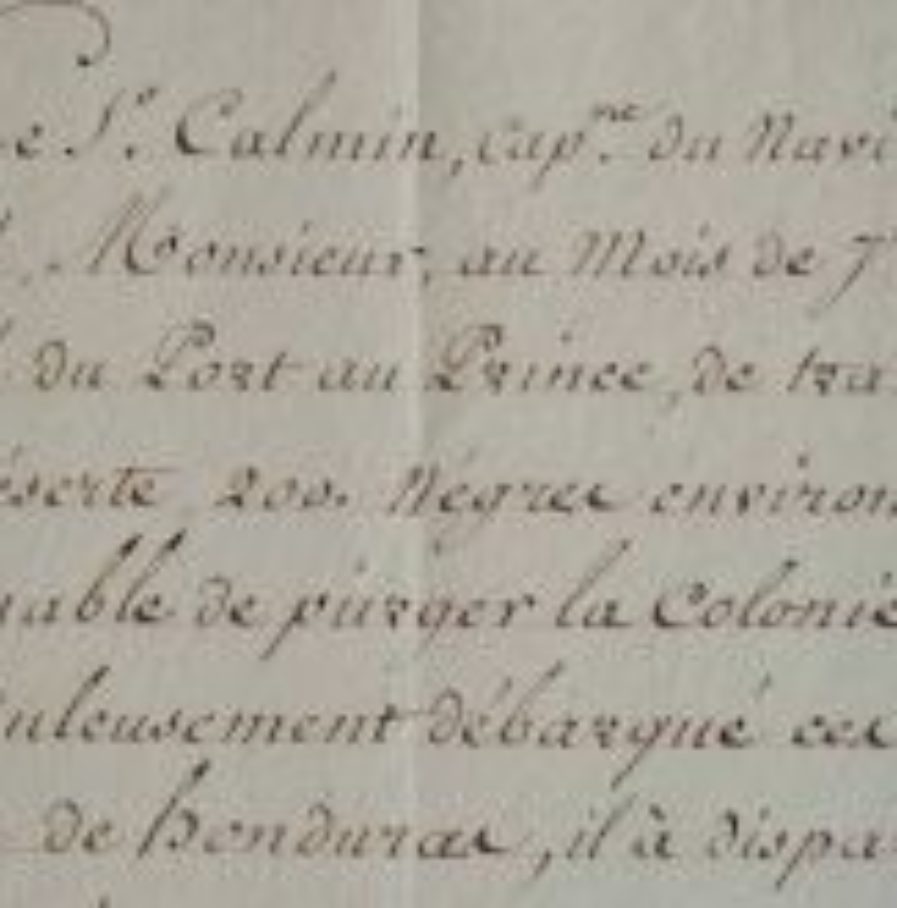 e S.r Calmin, cap.ne du Navi
Monsieur, au Mois de 7
du Port au Prince, de tra
éserte 200. Négres environ
able de purger la Colonie
uleusement débarqué ces
de honduras, il à dispa